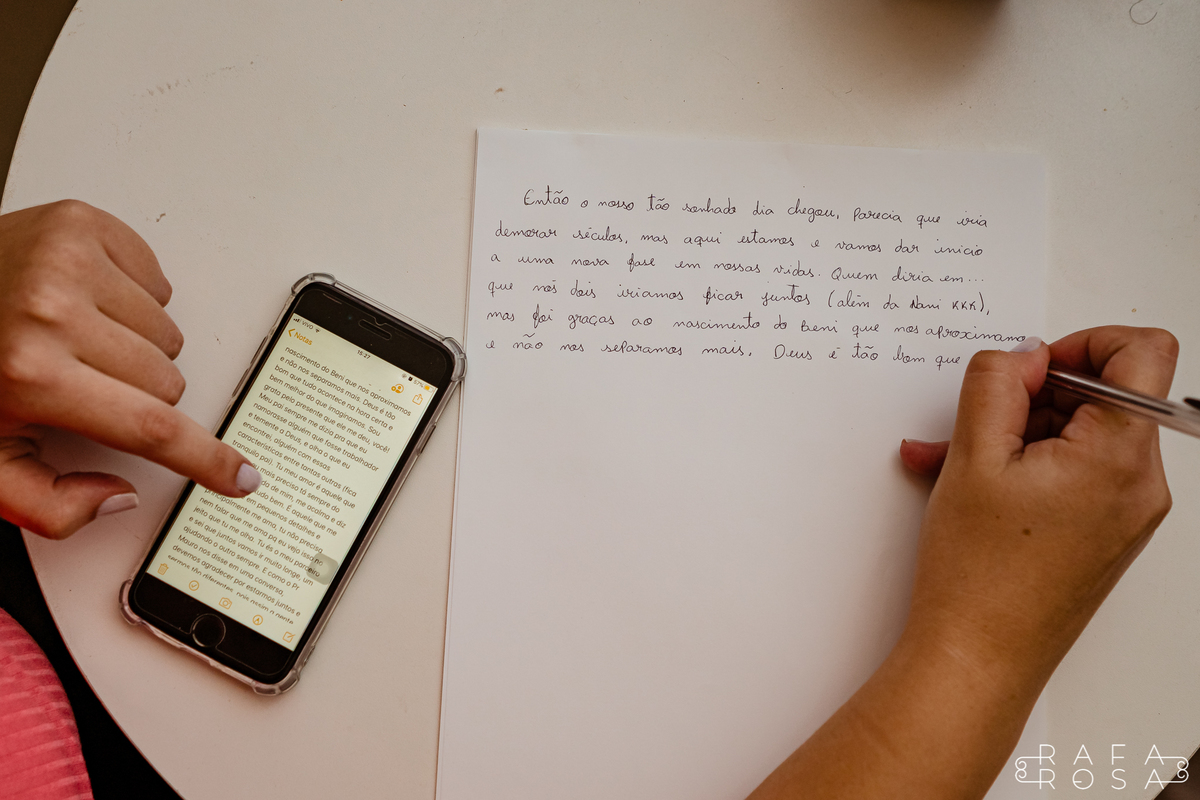 Então o nosso tão sonhado dia chegou, parecia que iria
demorar séculos, mas aqui estamos e vamos dar inicio
a uma nova fase em nossas vidas. Quem diria em...
que nós dois iriamos ficar juntos (além da Nani KKK),
mas foi graças ao nascimento do Beni que nos aproximamo
e não nos separamos mais. Deus é tão bom que
VIVO
15:27
57%
Notas
nascimento do Beni que nos aproximamos
e não nos separamos mais. Deus é tão
bom que tudo acontece na hora certa e
bem melhor do que imaginamos. Sou
grata pelo presente que ele me deu, você!
Meu pai sempre me dizia pra que eu
namorasse alguém que fosse trabalhador
e temente a Deus, e olha o que eu
encontrei, alguém com essas
características entre tantas outras (fica
tranquilo pai). Tu meu amor é aquele que
mais preciso tá sempre do
de mim, me acalma e diz
tudo bem. E aquele que me
em pequenos detalhes e
principalmente me ama, tu não precisa
nem falar que me ama pq eu vejo isso
jeito que tu me olha. Tu és o meu parceiro
e sei que juntos vamos ir muito longe, um
ajudando o outro sempre. E como o Pr
Mauro nos disse em uma conversa,
devemos agradecer por estarmos juntos e
RAFA
ROSA